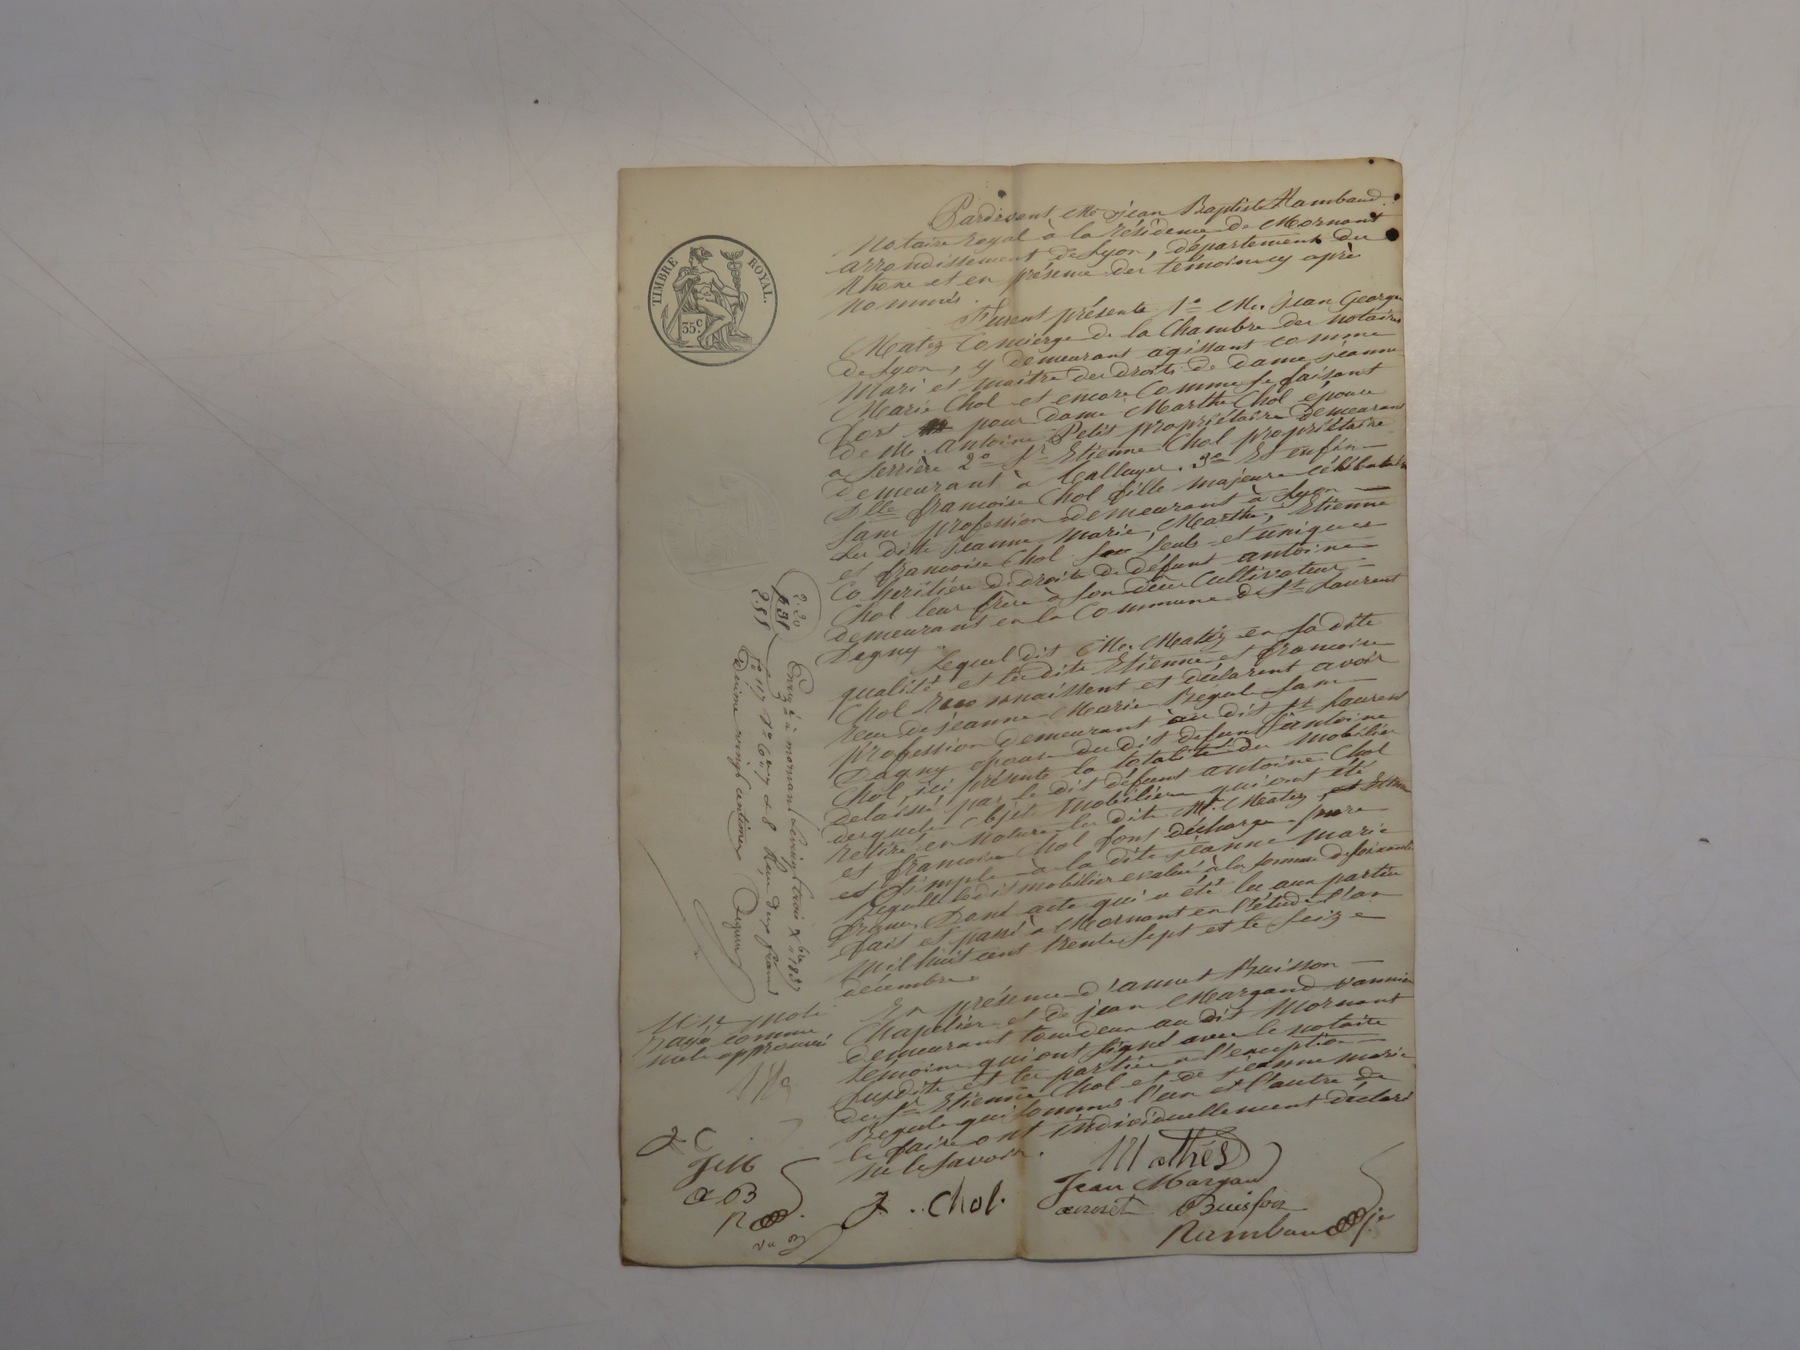 TIMBRE ROYAL.
35c
Pardevant Me jean Baptiste Rambaud
Notaire royal à la résidence de Mornant
arrondissement de Lyon, département du
Rhone et en présence des témoins cy après
nommés.
Furent présents 1o Mr. jean George
Matez Concierge de la Chambre des notaires
de Lyon, y demeurant agissant comme
Mari et maitre des droits de dame jeanne
Marie Chol et encore Comme se faisant
fort pour dame Marthe Chol épouse
de Mr. antoine Petit propriétaire demeurant
a Serrière 2o Sr Etienne Chol propriétaire
demeurant à 3o Et enfin
Dlle francoise Chol fille majeure célibataire
sans profession demeurant à Lyon
Les dits jeanne marie, Marthe, Etienne
et francoise Chol seuls et uniques
Co héritiers de droits de défunt antoine
Chol leur frère à son décès Cultivateur
demeurant en la Commune de St Laurent
Dagny.
Lequel dit Mr. Matéz en sa dite
qualité et les dits Etienne et francoise
Chol reconnaissent et déclarent avoir
recu de jeanne Marie Regule sans
profession demeurant au dit St Laurent
Dagny épouse du dit défunt antoine
Chol, ici présente la totalité du mobilier
délaissé par le dit défunt antoine Chol
desquels objets mobiliers qui ont été
retiré en nature les dits Mr. Matez et Etienne
et francoise Chol font décharge pure
et simple à la dite jeanne marie
Regule ledit mobilier evalué à la somme de soixante
francs. Dont acte qui a été lu aux parties
fait et passé à Mornant en l'étude l'an
mil huit cent trente sept et le seize
décembre.
En présence d'annet Buisson
Chapelier et de jean Margand vannier
demeurant tous deux au dit Mornant
témoins qui ont signé avec le notaire
susdits et les parties a l'exception
du Sr Etienne Chol et de jeanne marie
Regule qui sommés l'un et l'autre de
le faire ont individuellement déclaré
ne le savoir.
2.20
2.55
Enreg. à mornant le vingt trois Xbre 1837
fo 117 Vo Case 7 et 8 Recu deux francs
Décime vingt centimes
un mot
rayé comme
nul approuvé
J C
A B
R
Mathés
Jean Margan
annet Buisson
J. Chol.
Rambaud